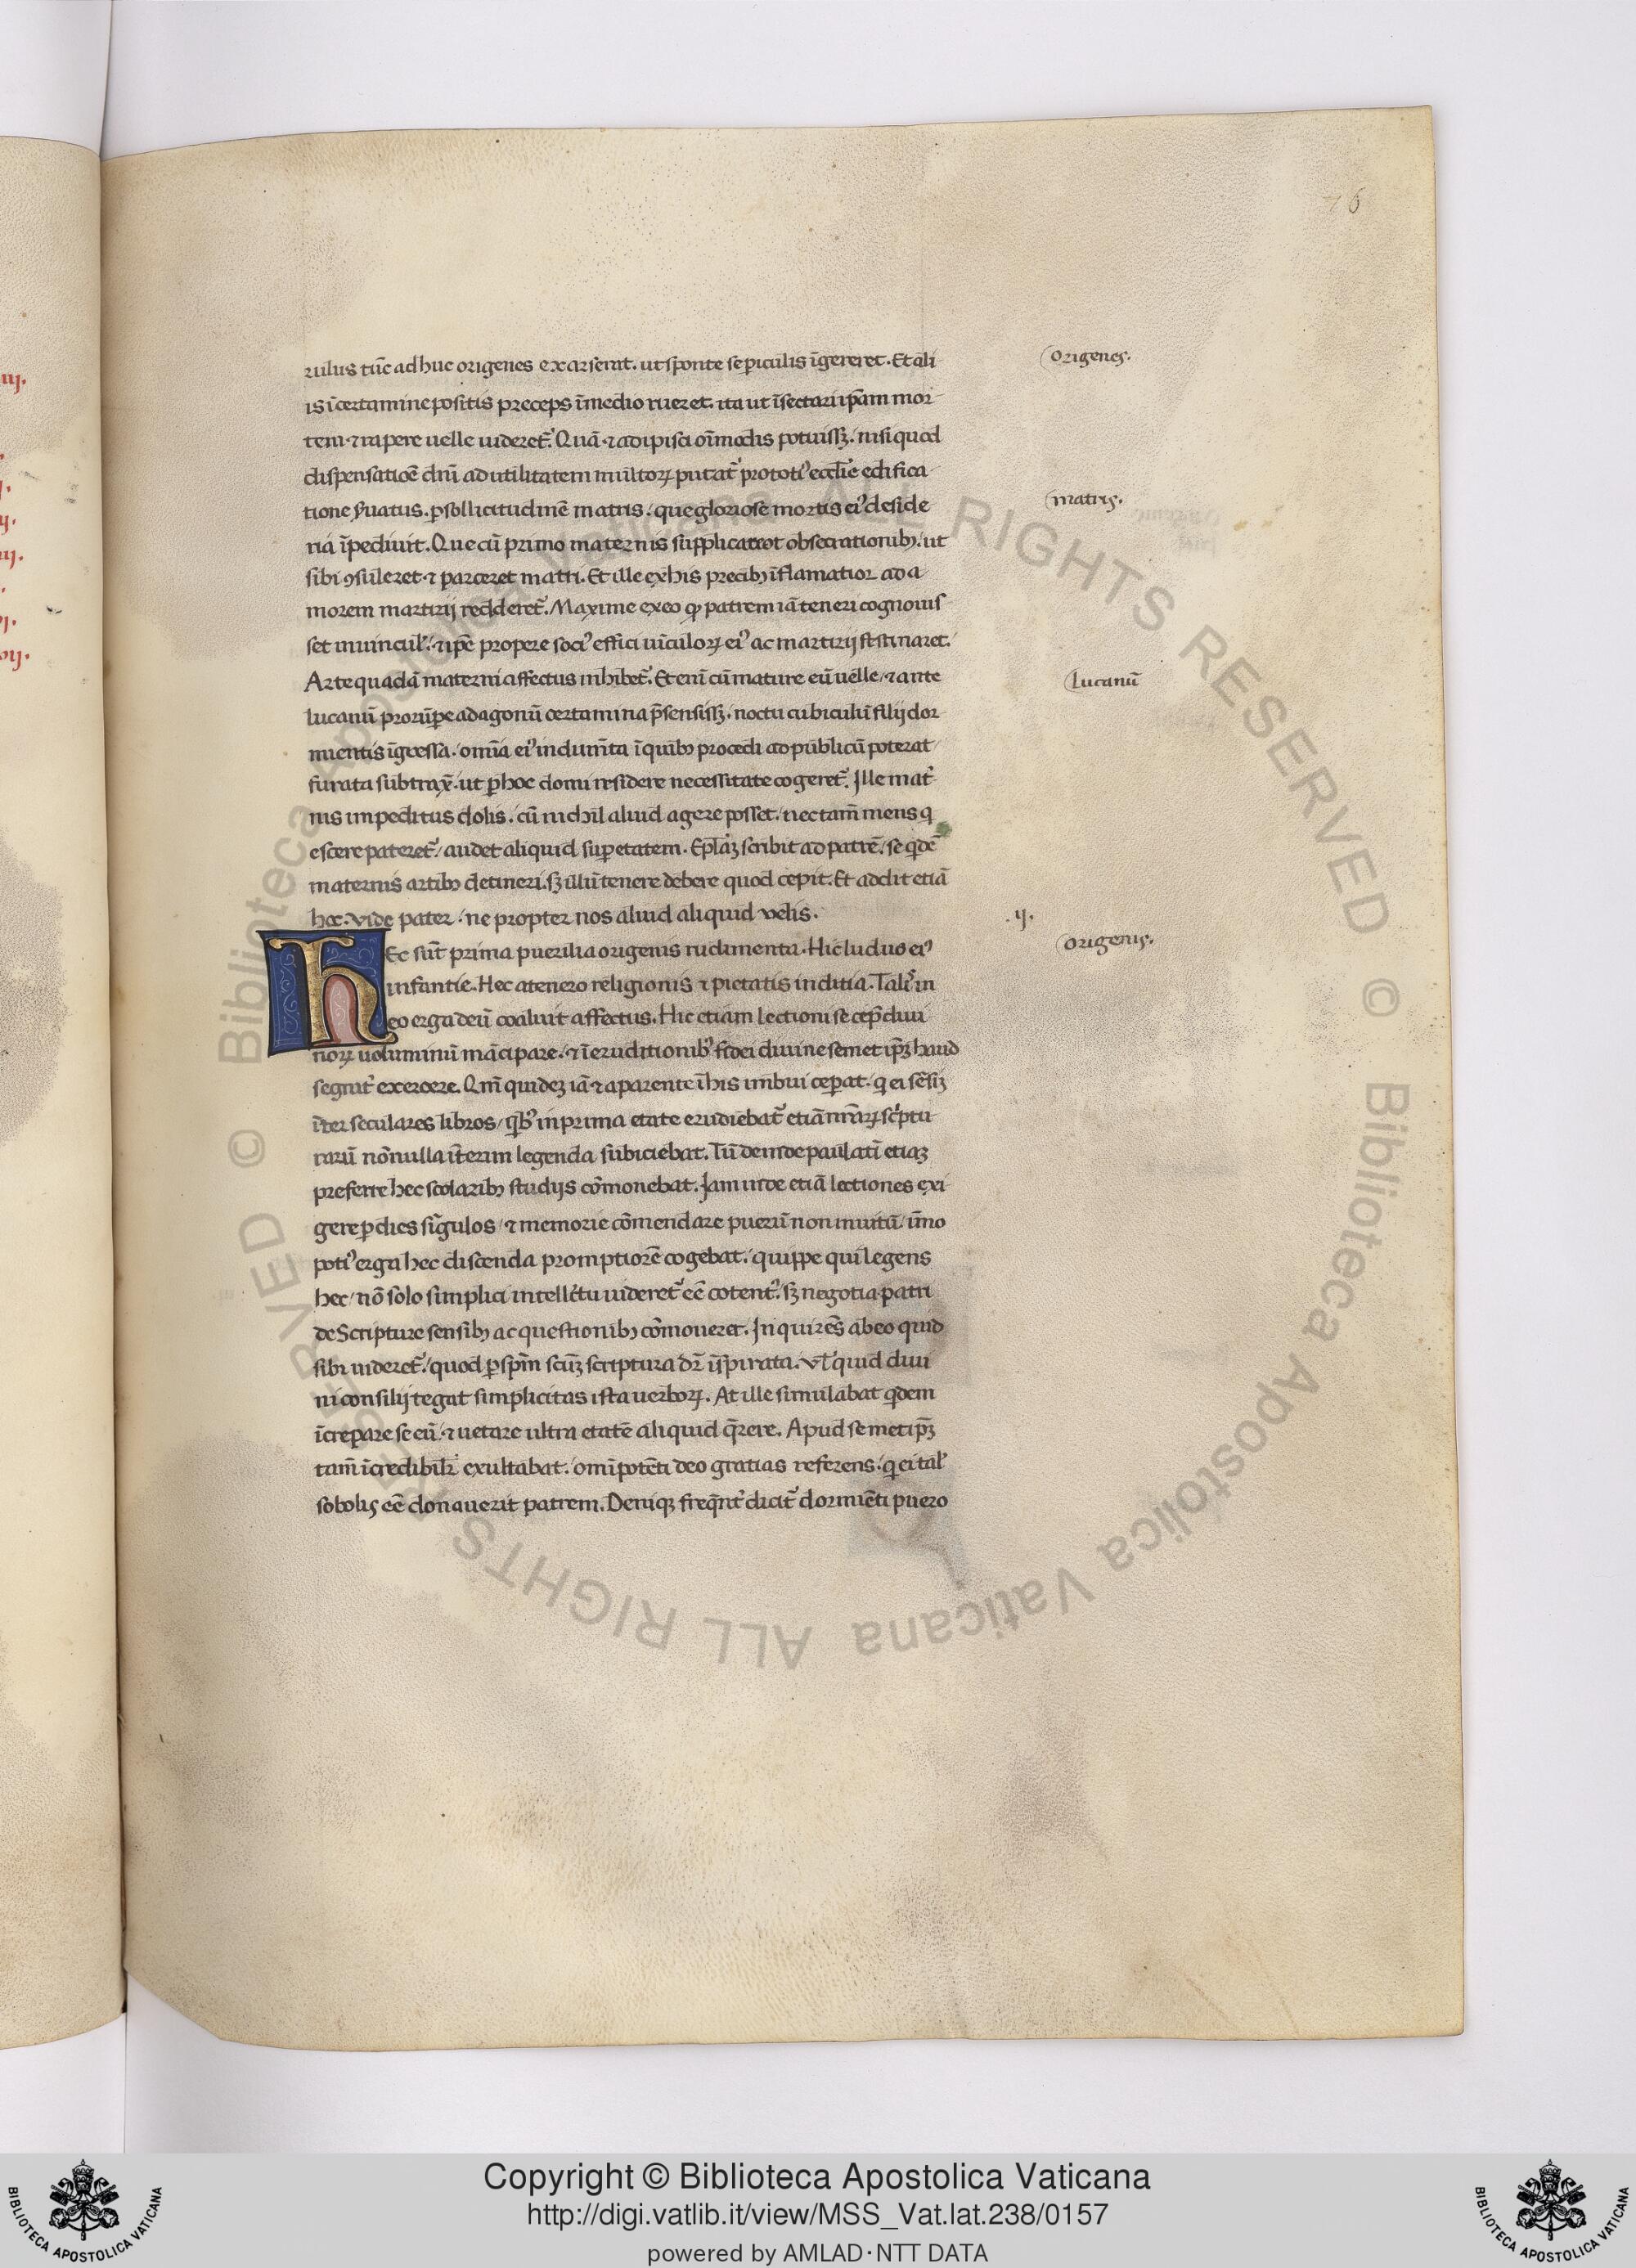 76
rulus tūc adhuc origenes exarserat. ut sponte se piculis īgereret. Et ali
is ī certamine positis preceps ī medio rueret. ita ut īsectari ip̄am mor
tem ⁊ rapere uelle uideret᷑. Quā ⁊ adipisci oīmodis potuissꝫ. nisi quod
dispensatiōe dn̄i ad utilitatem multoꝝ putat᷑ prototiꝰ eccl̄ie edifica
tione ẜuatus. ꝑ sollicitudinē matris. que gloriose mortis eiꝰ deside
ria īpediuit. Que cū primo maternis supplicaret obsecrationibꝫ. ut
sibi ꝯsuleret ⁊ parceret matri. Et ille ex his precibꝫ īflamatior ad a
morem martirij redderet᷑. Maxime ex eo ꝙ patrem iā teneri cognouis
set in uincul᷑. ⁊ ip̄e propere sociꝰ effici uīculoꝝ eiꝰ ac martirij festinaret.
Arte quadā materni affectus inhibet᷑. Etenī cū mature eū uelle ⁊ ante
lucanū prorūpe ad agonū certamina p̄sensissꝫ. noctu cubiculū filij dor
mientis īgressa. om̄ia eiꝰ indum̄ta ī quibꝫ procedi ad publicū poterat
furata subtrax̄. ut ꝑ hoc domi residere necessitate cogeret᷑. Ille mat᷑
nis impeditus dolis. cū nichil aliud agere posset. nec tam̄ mens q
escere pateret᷑. audet aliquid suꝑ etatem. Ep̄lāꝫ scribit ad patrē. se qͥdē
maternis artibꝫ detineri. sꝫ illū tenere debere quod cepit. Et addit etiā
hec. Vide pater. ne propter nos aliud aliquid velis.
hEc sūt prima puerilia origenis rudimenta. Hic ludus eiꝰ
infantie. Hec a tenero religionis ⁊ pietatis inditia. Tal᷑ in
eo erga deū coaluit affectus. Hic etiam lectioni se cep̄ diui
noꝝ uoluminū mācipare. ⁊ ī eruditionibꝰ fidei diuine semet ip̄ꝫ haud
segnit᷑ exercere. Qm̄ quideꝫ iā ⁊ a parente ī his imbui ceꝑat. q ei sēsiꝫ
īter seculares libros / qͥbꝰ in prima etate erudiebat᷑ etiā nr̄aꝝ sc̄ptu
rarū nōnulla īterim legenda subiciebat. Tū deinde paulatī etiaꝫ
preferre hec scolaribꝫ studijs cōmonebat. Iam inde etiā lectiones exi
gere ꝑ dies sīgulos / ⁊ memorie cōmendare puerū non inuitū īmo
potiꝰ erga hec discenda promptiorē cogebat. quippe qui legens
hec / nō solo simplici intell̄ctu uideret᷑ eē cotentꝰ. sꝫ negotia patri
de Scripture sensibꝫ ac questionibꝫ cōmoueret. Inquirēs ab eo quid
sibi uideret᷑ / quod ꝑ sp̄m scūꝫ scriptura dr̄ īspirata. Vl̄ quid diui
ni consilij tegat simplicitas ista uerboꝝ. At ille simulabat qͥdem
īcrepare se eū. ⁊ uetare ultra etatē aliquid q̄rere. Apud semet ip̄ꝫ
tam̄ īcredibilr᷑ exultabat. omīpotēti deo gratias referens. q ei tal᷑
sobolis eē donauerit patrem. Deniqꝫ freq̄nt᷑ dicit᷑ dormiēti puero
Origenes.
matris.
lucanū
.ij.
Origenis.
Copyright © Biblioteca Apostolica Vaticana
http://digi.vatlib.it/view/MSS_Vat.lat.238/0157
powered by AMLAD·NTT DATA
BIBLIOTECA APOSTOLICA VATICANA
BIBLIOTECA APOSTOLICA VATICANA
© Biblioteca Apostolica Vaticana ALL RIGHTS RESERVED © Biblioteca Apostolica Vaticana ALL RIGHTS RESERVED